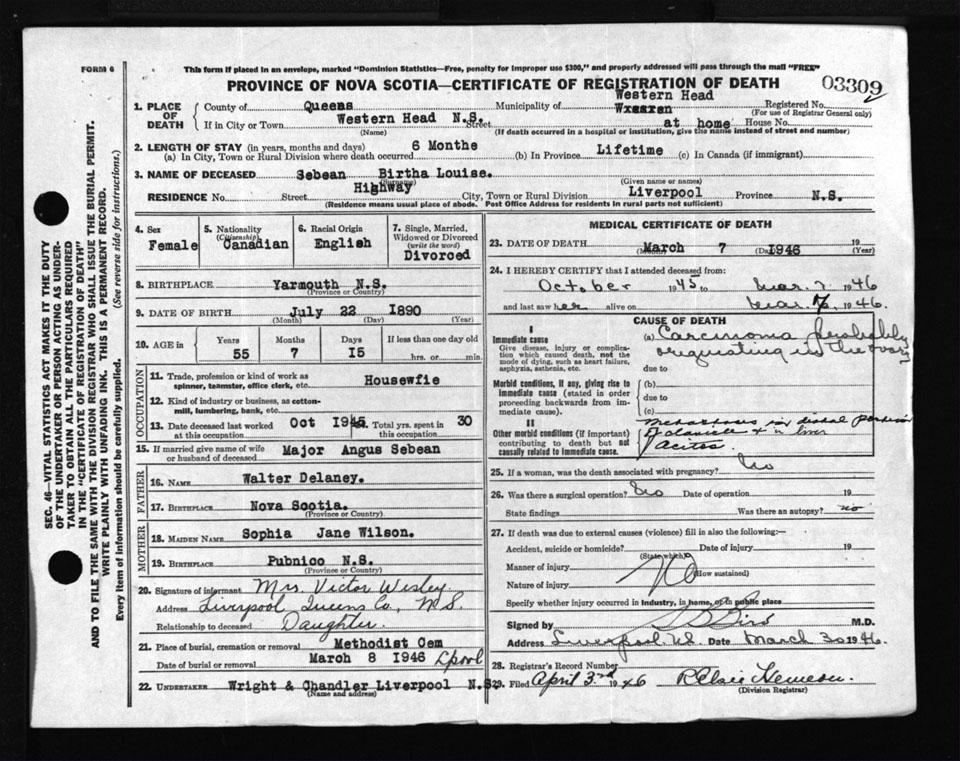 FORM 6
This form if placed in an envelope, marked "Dominion Statistics—Free, penalty for improper use $300," and properly addressed will pass through the mail "FREE"
PROVINCE OF NOVA SCOTIA—CERTIFICATE OF REGISTRATION OF DEATH
03309
1. PLACE OF DEATH
County of Queens Municipality of Western Head Registered No.
(For use of Registrar General only)
If in City or Town Western Head N.S. Street at home House No.
(Name) (If death occurred in a hospital or institution, give the name instead of street and number)
2. LENGTH OF STAY (in years, months and days)
(a) In City, Town or Rural Division where death occurred 6 Monthe (b) In Province Lifetime (c) In Canada (if immigrant)
3. NAME OF DECEASED Sebean Birtha Louise.
(Surname) (Given name or names)
RESIDENCE No. Street Highway City, Town or Rural Division Liverpool Province N.S.
(Residence means usual place of abode. Post Office Address for residents in rural parts not sufficient)
4. Sex Female
5. Nationality (Citizenship) Canadian
6. Racial Origin English
7. Single, Married, Widowed or Divorced (write the word) Divorced
8. BIRTHPLACE Yarmouth N.S.
(Province or Country)
9. DATE OF BIRTH July 22 1890
(Month) (Day) (Year)
10. AGE in Years 55 Months 7 Days 15 If less than one day old hrs. or min.
OCCUPATION
11. Trade, profession or kind of work as spinner, teamster, office clerk, etc. Housewfie
12. Kind of industry or business, as cotton-mill, lumbering, bank, etc.
13. Date deceased last worked at this occupation Oct 1945 14. Total yrs. spent in this occupation 30
15. If married give name of wife or husband of deceased Major Angus Sebean
FATHER
16. NAME Walter Delaney.
17. BIRTHPLACE Nova Scotia.
(Province or Country)
MOTHER
18. MAIDEN NAME Sophia Jane Wilson.
19. BIRTHPLACE Pubnico N.S.
(Province or Country)
20. Signature of informant Mrs. Victor Wesley
Address Liverpool Queens Co., N.S.
Relationship to deceased Daughter.
21. Place of burial, cremation or removal Methodist Cem
Date of burial or removal March 8 1946 Lpool
22. UNDERTAKER Wright & Chandler Liverpool N.S.
(Name and address)
MEDICAL CERTIFICATE OF DEATH
23. DATE OF DEATH March 7 1946 19
(Month) (Day) (Year)
24. I HEREBY CERTIFY that I attended deceased from:
October 1945 to Mar. 7. 1946
and last saw her alive on Mar. 7. 1946.
CAUSE OF DEATH
I
Immediate cause
Give disease, injury or complication which caused death, not the mode of dying, such as heart failure, asphyxia, asthenia, etc.
(a) Carcinoma probably
originating in the ovary
due to
Morbid conditions, if any, giving rise to immediate cause (stated in order proceeding backwards from immediate cause).
(b)
due to
(c)
II
Other morbid conditions (if important) contributing to death but not causally related to immediate cause.
Metastases in distal portion
& in liver
25. If a woman, was the death associated with pregnancy? No
26. Was there a surgical operation? No Date of operation 19
State findings Was there an autopsy? no
27. If death was due to external causes (violence) fill in also the following:—
Accident, suicide or homicide? Date of injury 19
(State which)
Manner of injury No
(How sustained)
Nature of injury
Specify whether injury occurred in industry, in home, or in public place
Signed by M.D.
Address Liverpool. N.S. Date March 30 1946.
28. Registrar's Record Number
29. Filed April 3rd 1946
(Division Registrar)
SEC. 46—VITAL STATISTICS ACT MAKES IT THE DUTY
OF THE UNDERTAKER OR PERSON ACTING AS UNDER-
TAKER TO OBTAIN ALL THE PARTICULARS REQUIRED
IN THE "CERTIFICATE OF REGISTRATION OF DEATH"
AND TO FILE THE SAME WITH THE DIVISION REGISTRAR WHO SHALL ISSUE THE BURIAL PERMIT.
WRITE PLAINLY WITH UNFADING INK. THIS IS A PERMANENT RECORD.
Every item of information should be carefully supplied. (See reverse side for instructions.)